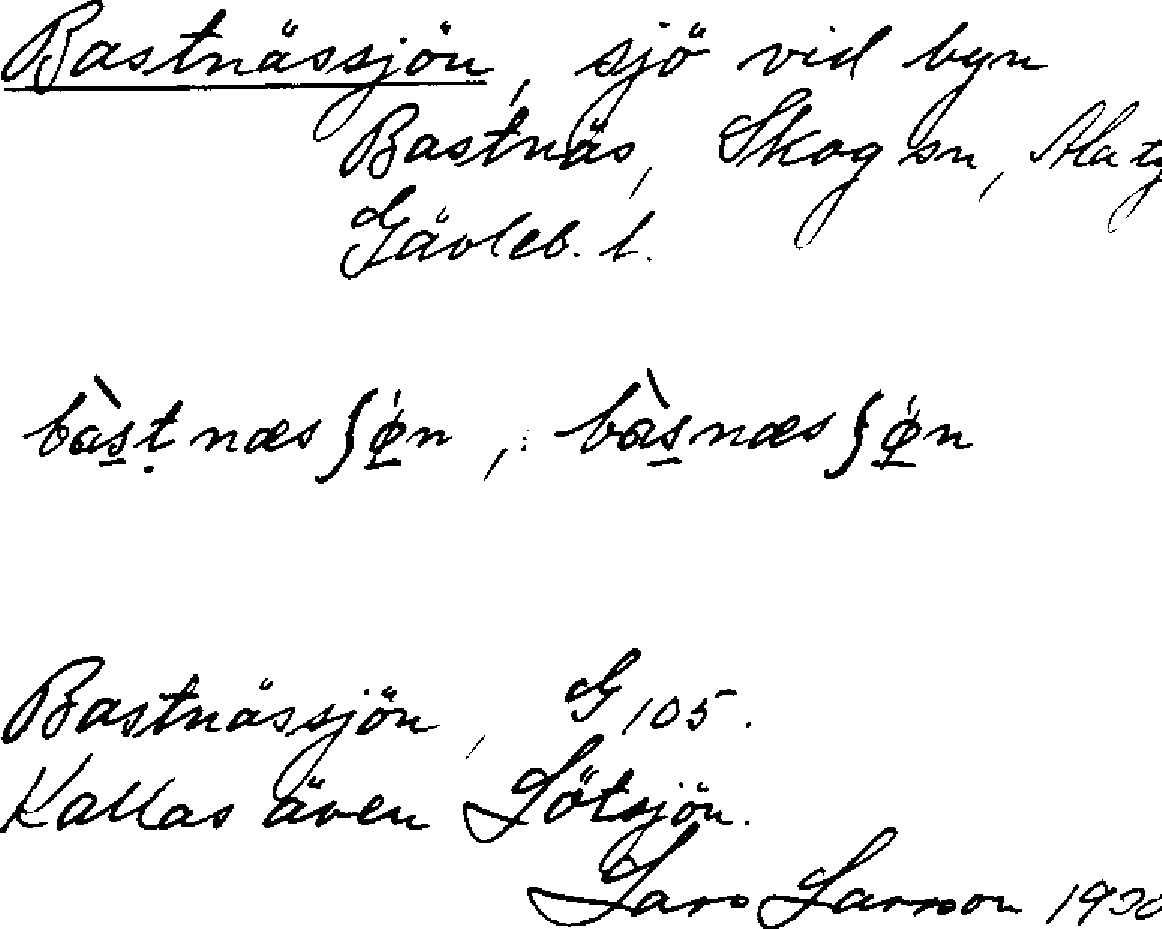 Bastnässjön, sjö vid byn
Bastnäs, Skog sn, Ala tg
Gävleb. l.
bàs̲ṭnæsʃǿ̲n, bàs̲næsʃǿ̲n
Bastnässjön, G 105.
Kallas även Lötsjön.
Lars Larsson 1930